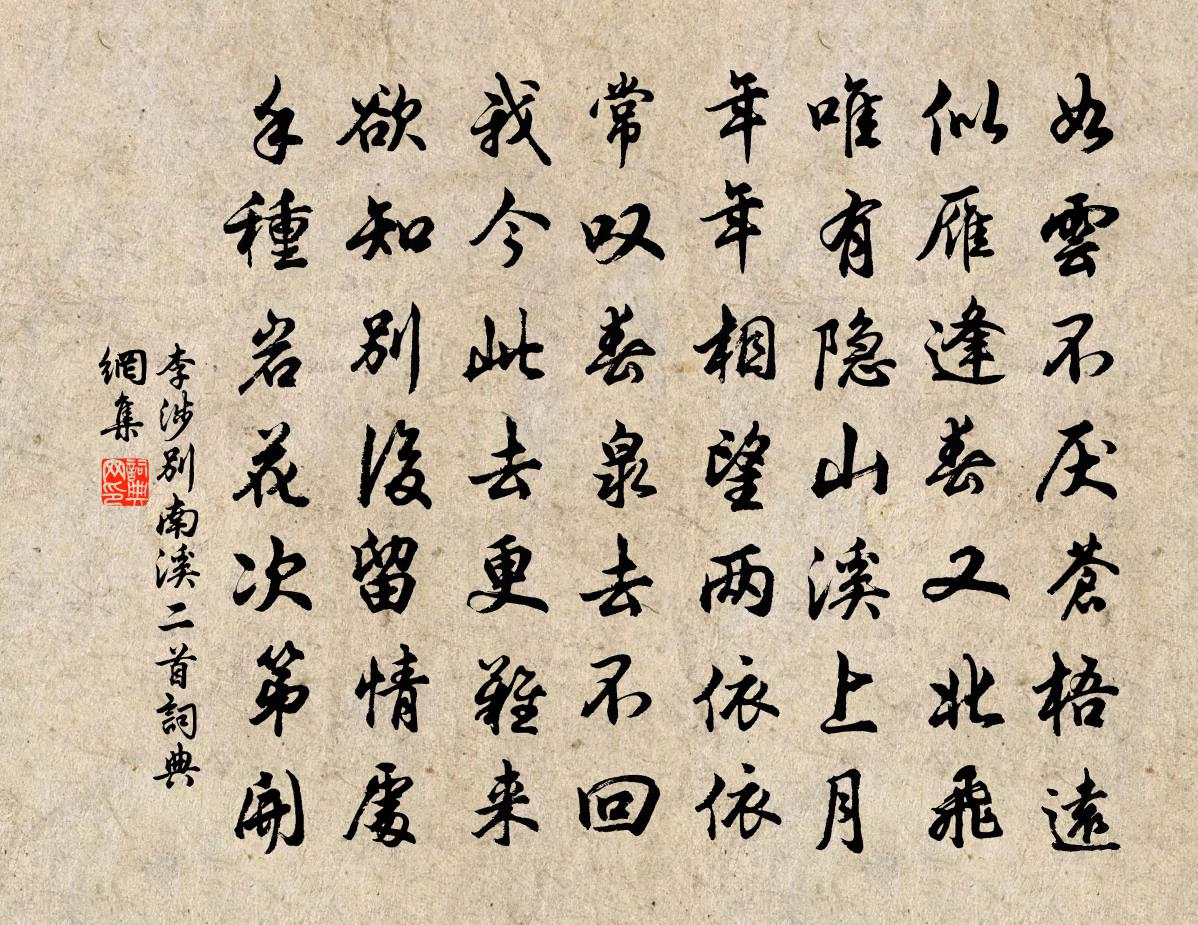 如雲不厌蒼梧遠
似雁逢春又北飛
唯有隐山溪上月
年年相望两依依
常叹春泉去不回
我今此去更難来
欲知別後留情處
手種岩花次第開
李涉別南溪二首詞典
網集
詞典网印